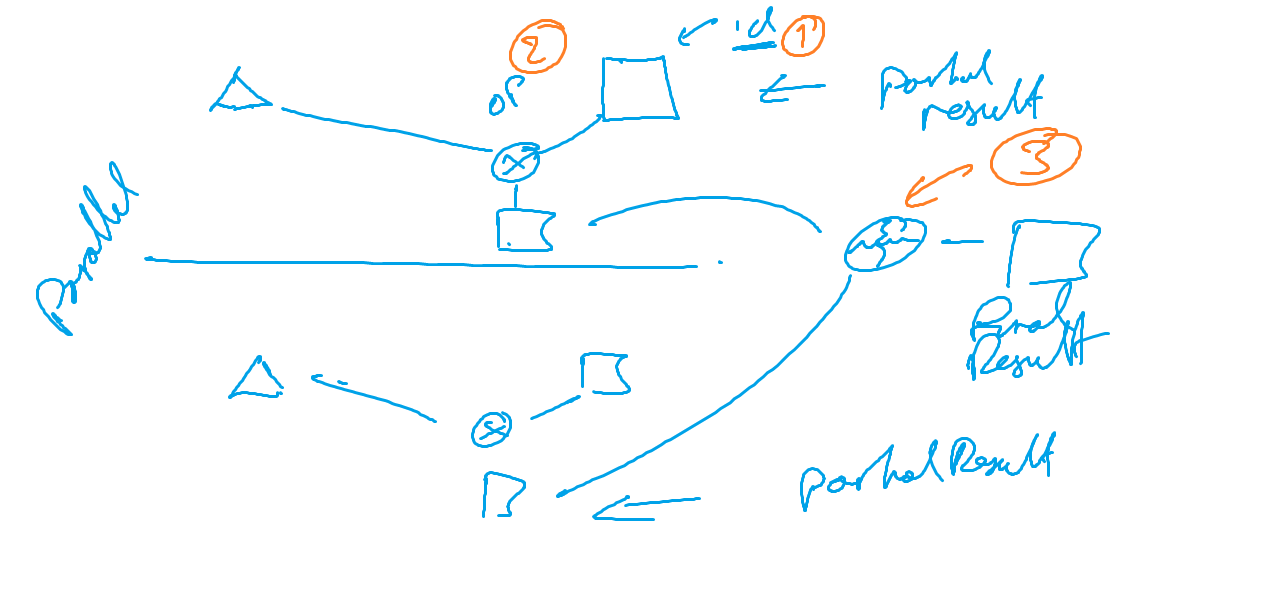 2
id 1
op
partial
result
3
Parallel
x
Final
Result
x
partial Result